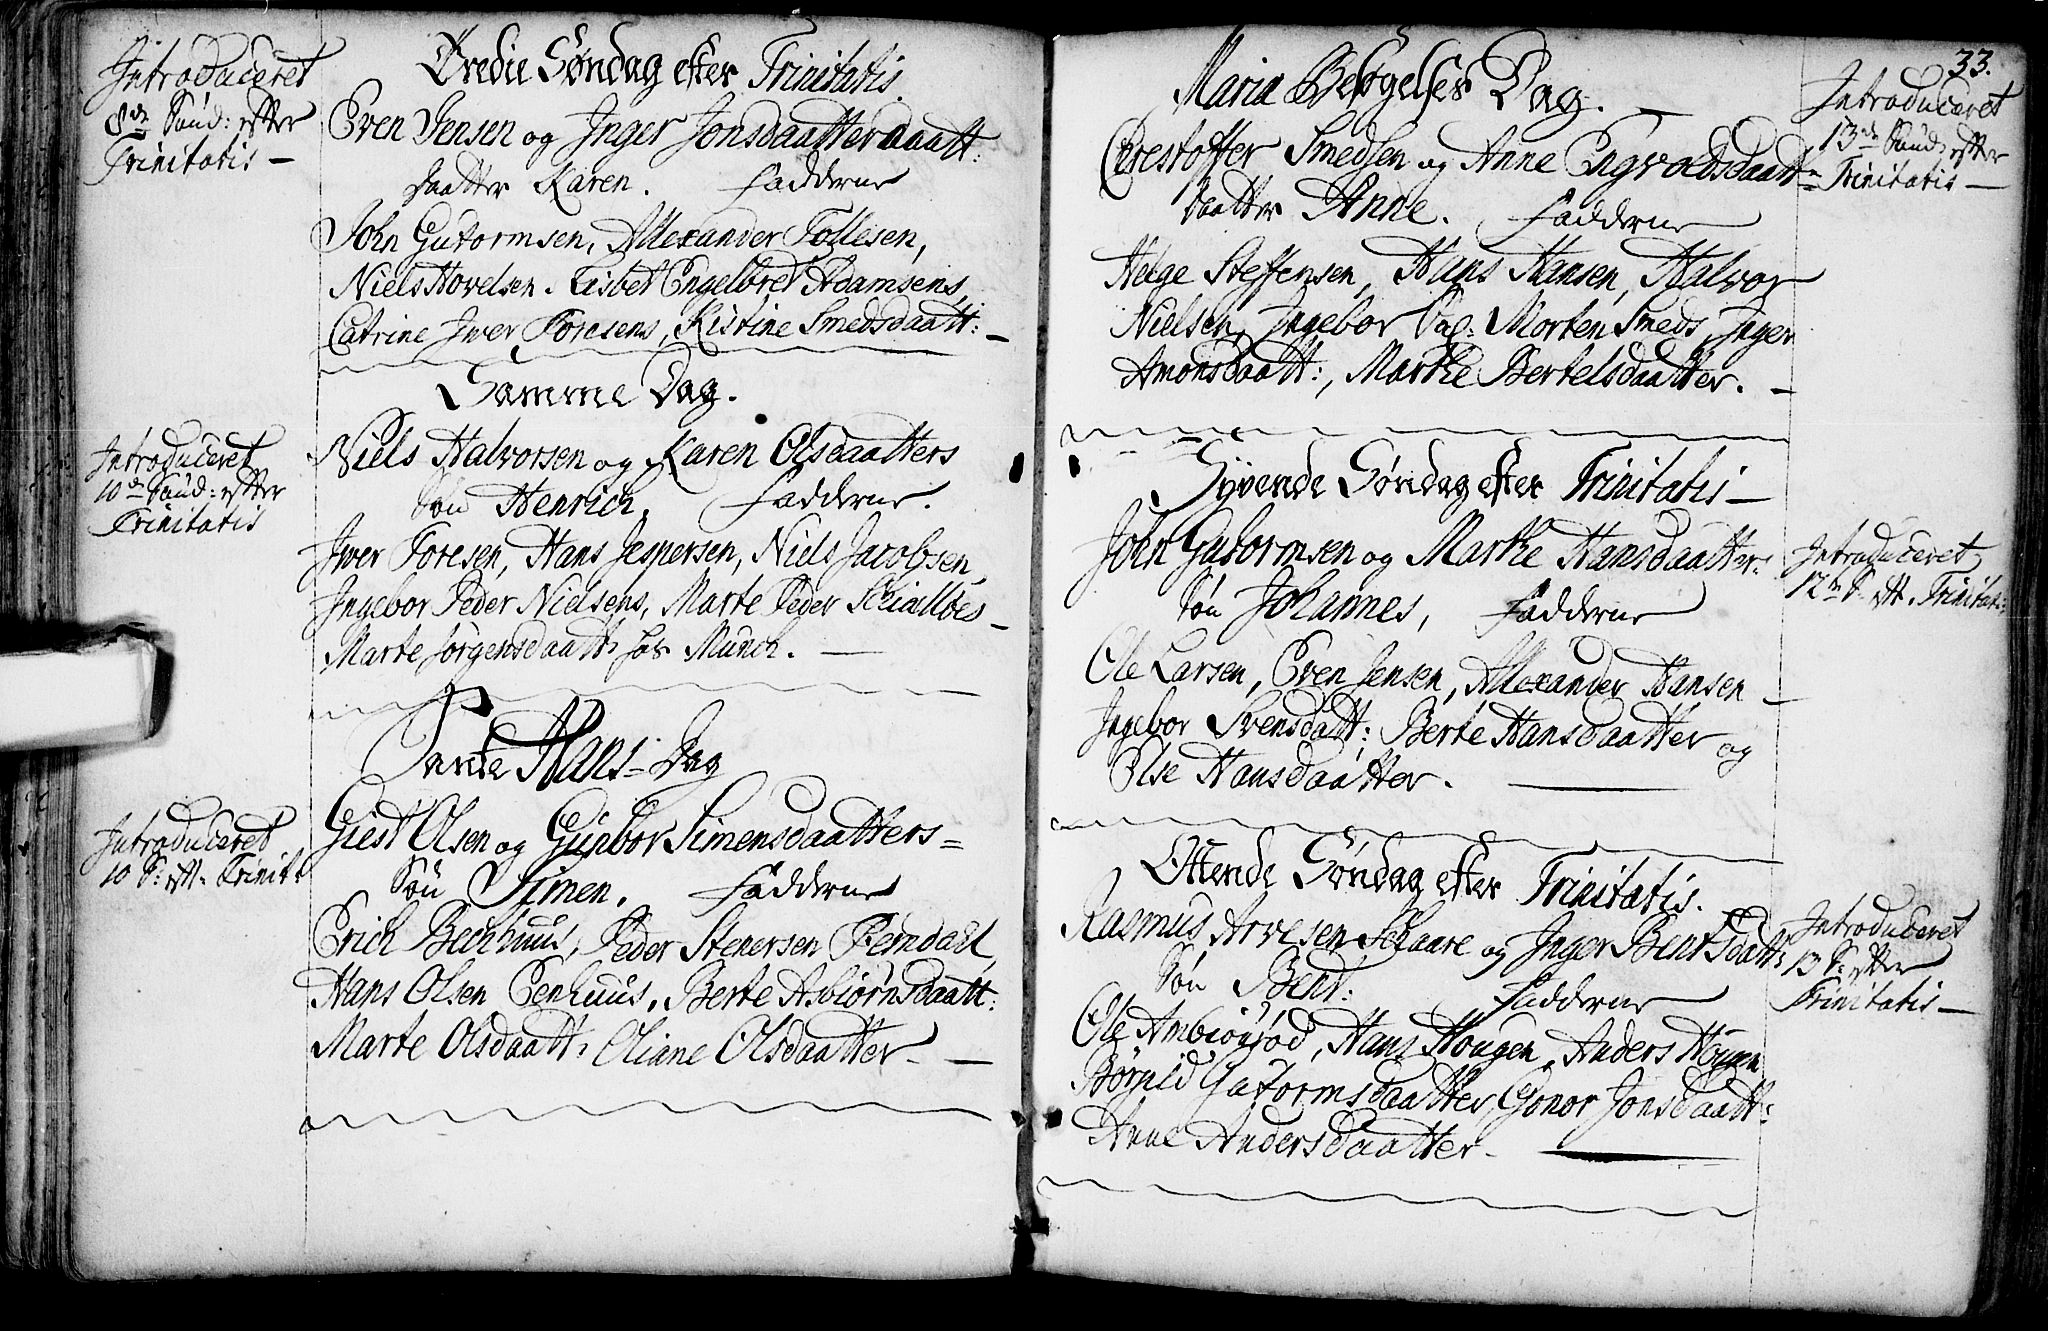 Introduceret
8de Sønd: efter
Trinitatis —
Tredie Søndag efter Trinitatis.
Even Jensen og Inger Jonsdaatter daatt:
daatter Karen. Fadderne
John Gutormsen, Allexander Tollesen,
Niels Hovelsen. Lisbet Engelbret Adamsens,
Catrine Iwer Toresens, Kistine Smedsdaatt: —
Samme Dag.
Introduceret
10de Sønd: efter
Trinitatis
Niels Halvorsen og Karen Olsdaatters
Søn Henrich. Fadderne.
Iwer Toresen, Hans Jespersen, Niels Jacobsen,
Ingebor Peder Nielsens, Marte Peder
Marte Jørgensdaatt: hos Munch. —
Sancte Hans = Dag
Introduceret
10 S: eft: Trinit:
Giest Olsen og Gunbor Simensdaatters =
Søn Simen. Fadderne
Erich Bechhuus, Peder Stenersen
Hans Olsen Eenhuus, Berte Asbiørnsdaatt:
Marte Olsdaatt: Oliane Olsdaatter. —
33.
Mariæ Besøgelses Dag. —
Introduceret
13de Sønd: efter
Trinitatis —
Chrestoffer Smedsen og Anne Engvoldsdaattr
daatter Anne. Fadderne
Helge Steffensen, Hans Hansen, Halvor
Nielsen, Ingebor Morten Smeds, Inger
Amonsdaatt:, Marthe Bertelsdaatter. —
Syvende Søndag efter Trinitatis —
Introduceret
12te S: eft. Trinitat:
John Gutormsen og Marthe Hansdaatter
Søn Johannes, Fadderne
Ole Larsen, Even Jensen, Allexander Hansen —
Ingebor Svensdatt: Berte Hansdaatter og
Else Hansdaatter. —
Ottende Søndag efter Trinitatis.
Introduceret
13 S: efter
Trinitatis —
Rasmus Arvesen og Inger Bentsdatt:
Søn Bent: Fadderne
Ole Hans Hougen, Anders Hougen
Børnild Gutormsdaatter, Gonor Jonsdaatt:
Anne Andersdaatter. —